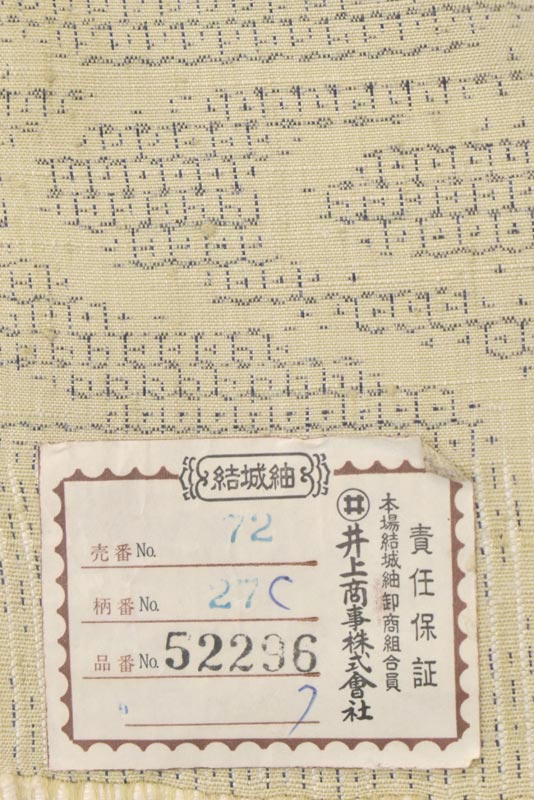 結城紬
責任保証
本場結城紬卸商組合員
井 井上商事株式會社
売番No. 72
柄番No. 27C
品番No. 52296